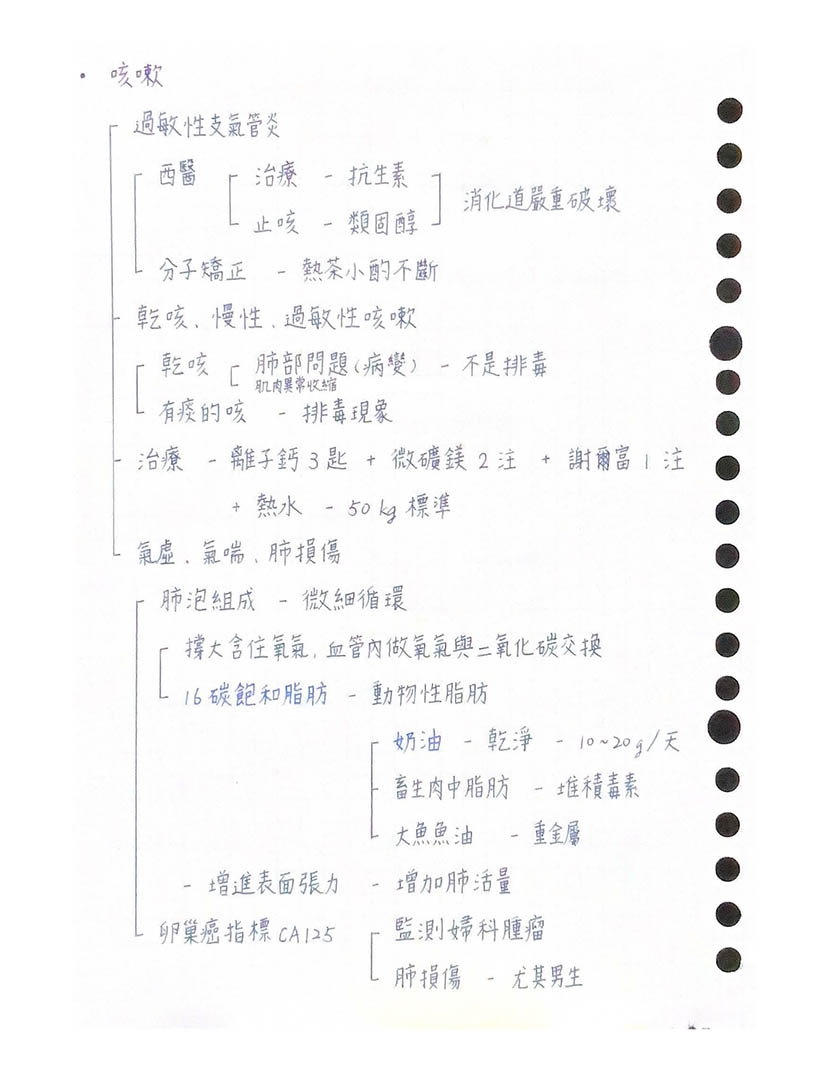 • 咳嗽
過敏性支氣管炎
西醫 治療 - 抗生素
消化道嚴重破壞
止咳 - 類固醇
分子矯正 - 熱茶小酌不斷
乾咳、慢性、過敏性咳嗽
乾咳 肺部問題(病變) - 不是排毒
肌肉異常收縮
有痰的咳 - 排毒現象
治療 - 離子鈣3匙 + 微礦鎂2注 + 謝爾富1注
+ 熱水 - 50kg標準
氣虛、氣喘、肺損傷
肺泡組成 - 微細循環
撐大含住氧氣,血管內做氧氣與二氧化碳交換
16碳飽和脂肪 - 動物性脂肪
奶油 - 乾淨 - 10~20g/天
畜生肉中脂肪 - 堆積毒素
大魚魚油 - 重金屬
- 增進表面張力 - 增加肺活量
卵巢癌指標CA125 監測婦科腫瘤
肺損傷 - 尤其男生